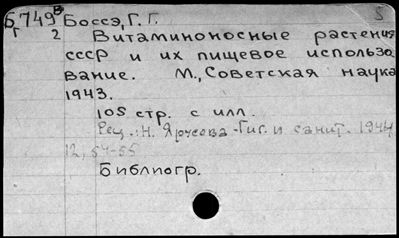 Б749в Боссэ, Г. Г. 5
Г 2 Витаминоносные растения
СССР и их пищевое использо
вание. М., Советская наука
1943.
105 стр. с илл.
Рец.: Н. Ярусова - Гиг. и санит. 1944
12, 54-55
Библиогр.